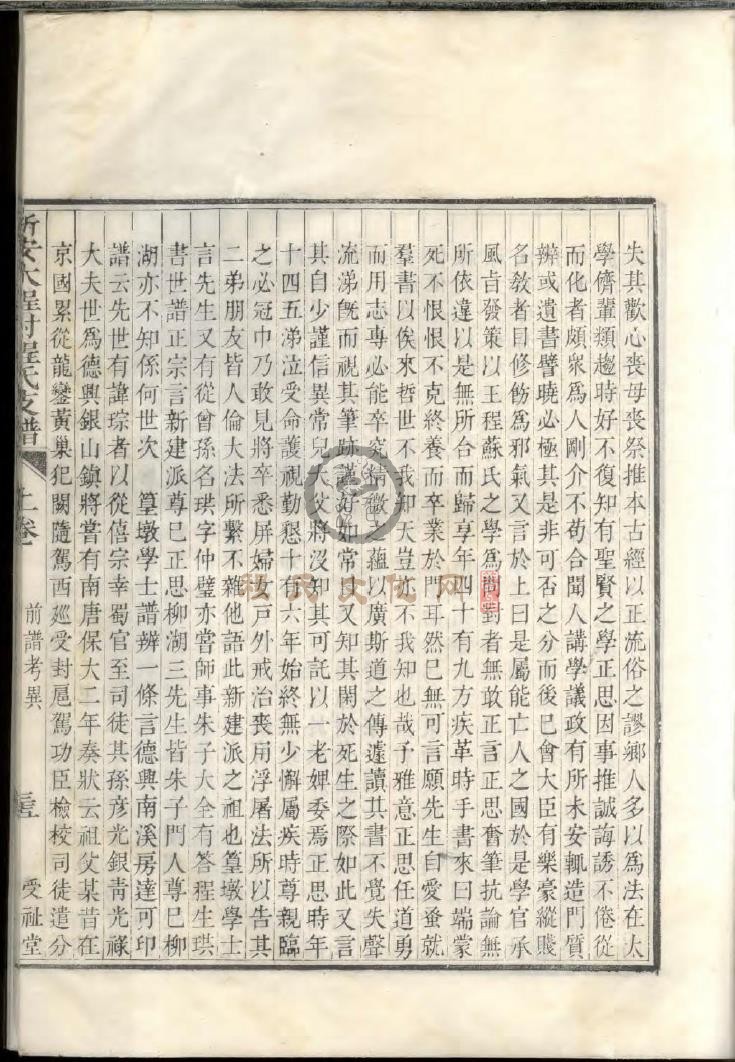 失其歡心喪母喪祭推本古經以正流俗之謬鄉人多以爲法在太
學儕輩類趨時好不復知有聖賢之學正思因事推誠誨誘不倦從
而化者頗衆爲人剛介不苟合聞人講學議政有所未安輒造門質
辨或遺書譬曉必極其是非可否之分而後已會大臣有樂豪縱賤
名敎者目修飭爲邪氣又言於上曰是屬能亡人之國於是學官承
風㫖發策以王程蘇氏之學爲問對者無敢正言正思奮筆抗論無
所依違以是無所合而歸享年四十有九方疾革時手書來曰端蒙
死不恨恨不克終養而卒業於門耳然已無可言願先生自愛蚤就
羣書以俟來哲世不我知天豈亦不我知也哉予雅意正思任道勇
而用志專必能卒究精微之蘊以廣斯道之傳遽讀其書不覺失聲
流涕旣而視其筆跡謹好如常又知其閑於死生之際如此又言
其自少謹信異常兒大父將沒知其可託以一老婢委焉正思時年
十四五涕泣受命護視勤懇十有六年始終無少懈屬疾時尊親臨
之必冠巾乃敢見將卒悉屏婦女戶外戒治喪用浮屠法所以告其
二弟朋友皆人倫大法所繫不雜他語此新建派之祖也篁墩學士
言先生又有從曾孫名珙字仲璧亦嘗師事朱子大全有答程生珙
書世譜正宗言新建派尊已正思柳湖三先生皆朱子門人尊已柳
湖亦不知係何世次 篁墩學士譜辨一條言德興南溪房達可印
譜云先世有諱琮者以從僖宗幸蜀官至司徒其孫彦光銀靑光祿
大夫世爲德興銀山鎭將嘗有南唐保大二年奏狀云祖父某昔在
京國累從龍鑾黃巢犯闕隨駕西廵受封扈駕功臣檢校司徒遣分
新安大程村程氏支譜 上卷 前譜考異 受祉堂
牧民文化网